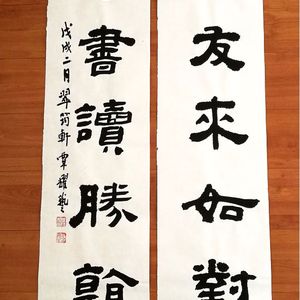 友來如對
書讀勝
戊戌二月翠筠軒覃耀